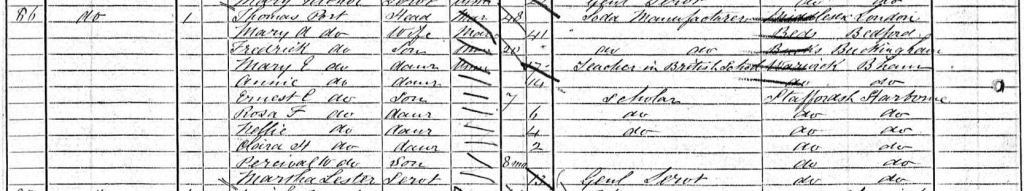 Genl Servt
86 do 1 Thomas Port Head Mar 48 Soda Manufacturer Middlesex London
Mary A do Wife Mar 41 " Beds Bedford
Fredrick do Son Unm 20 " do do Bucks Buckingham
Mary E do daur Unm 17 Teacher in British School Warwick B'ham
Annie do daur 14 do do
Ernest C do Son 7 Scholar Staffordsh Harborne
Rosa F do daur 6 do do do
Nellie do daur 4 do do do
Clara H do daur 2 do do
Percival W do Son 8 mo do do
Martha Lester Servt 13 Genl Servt do do